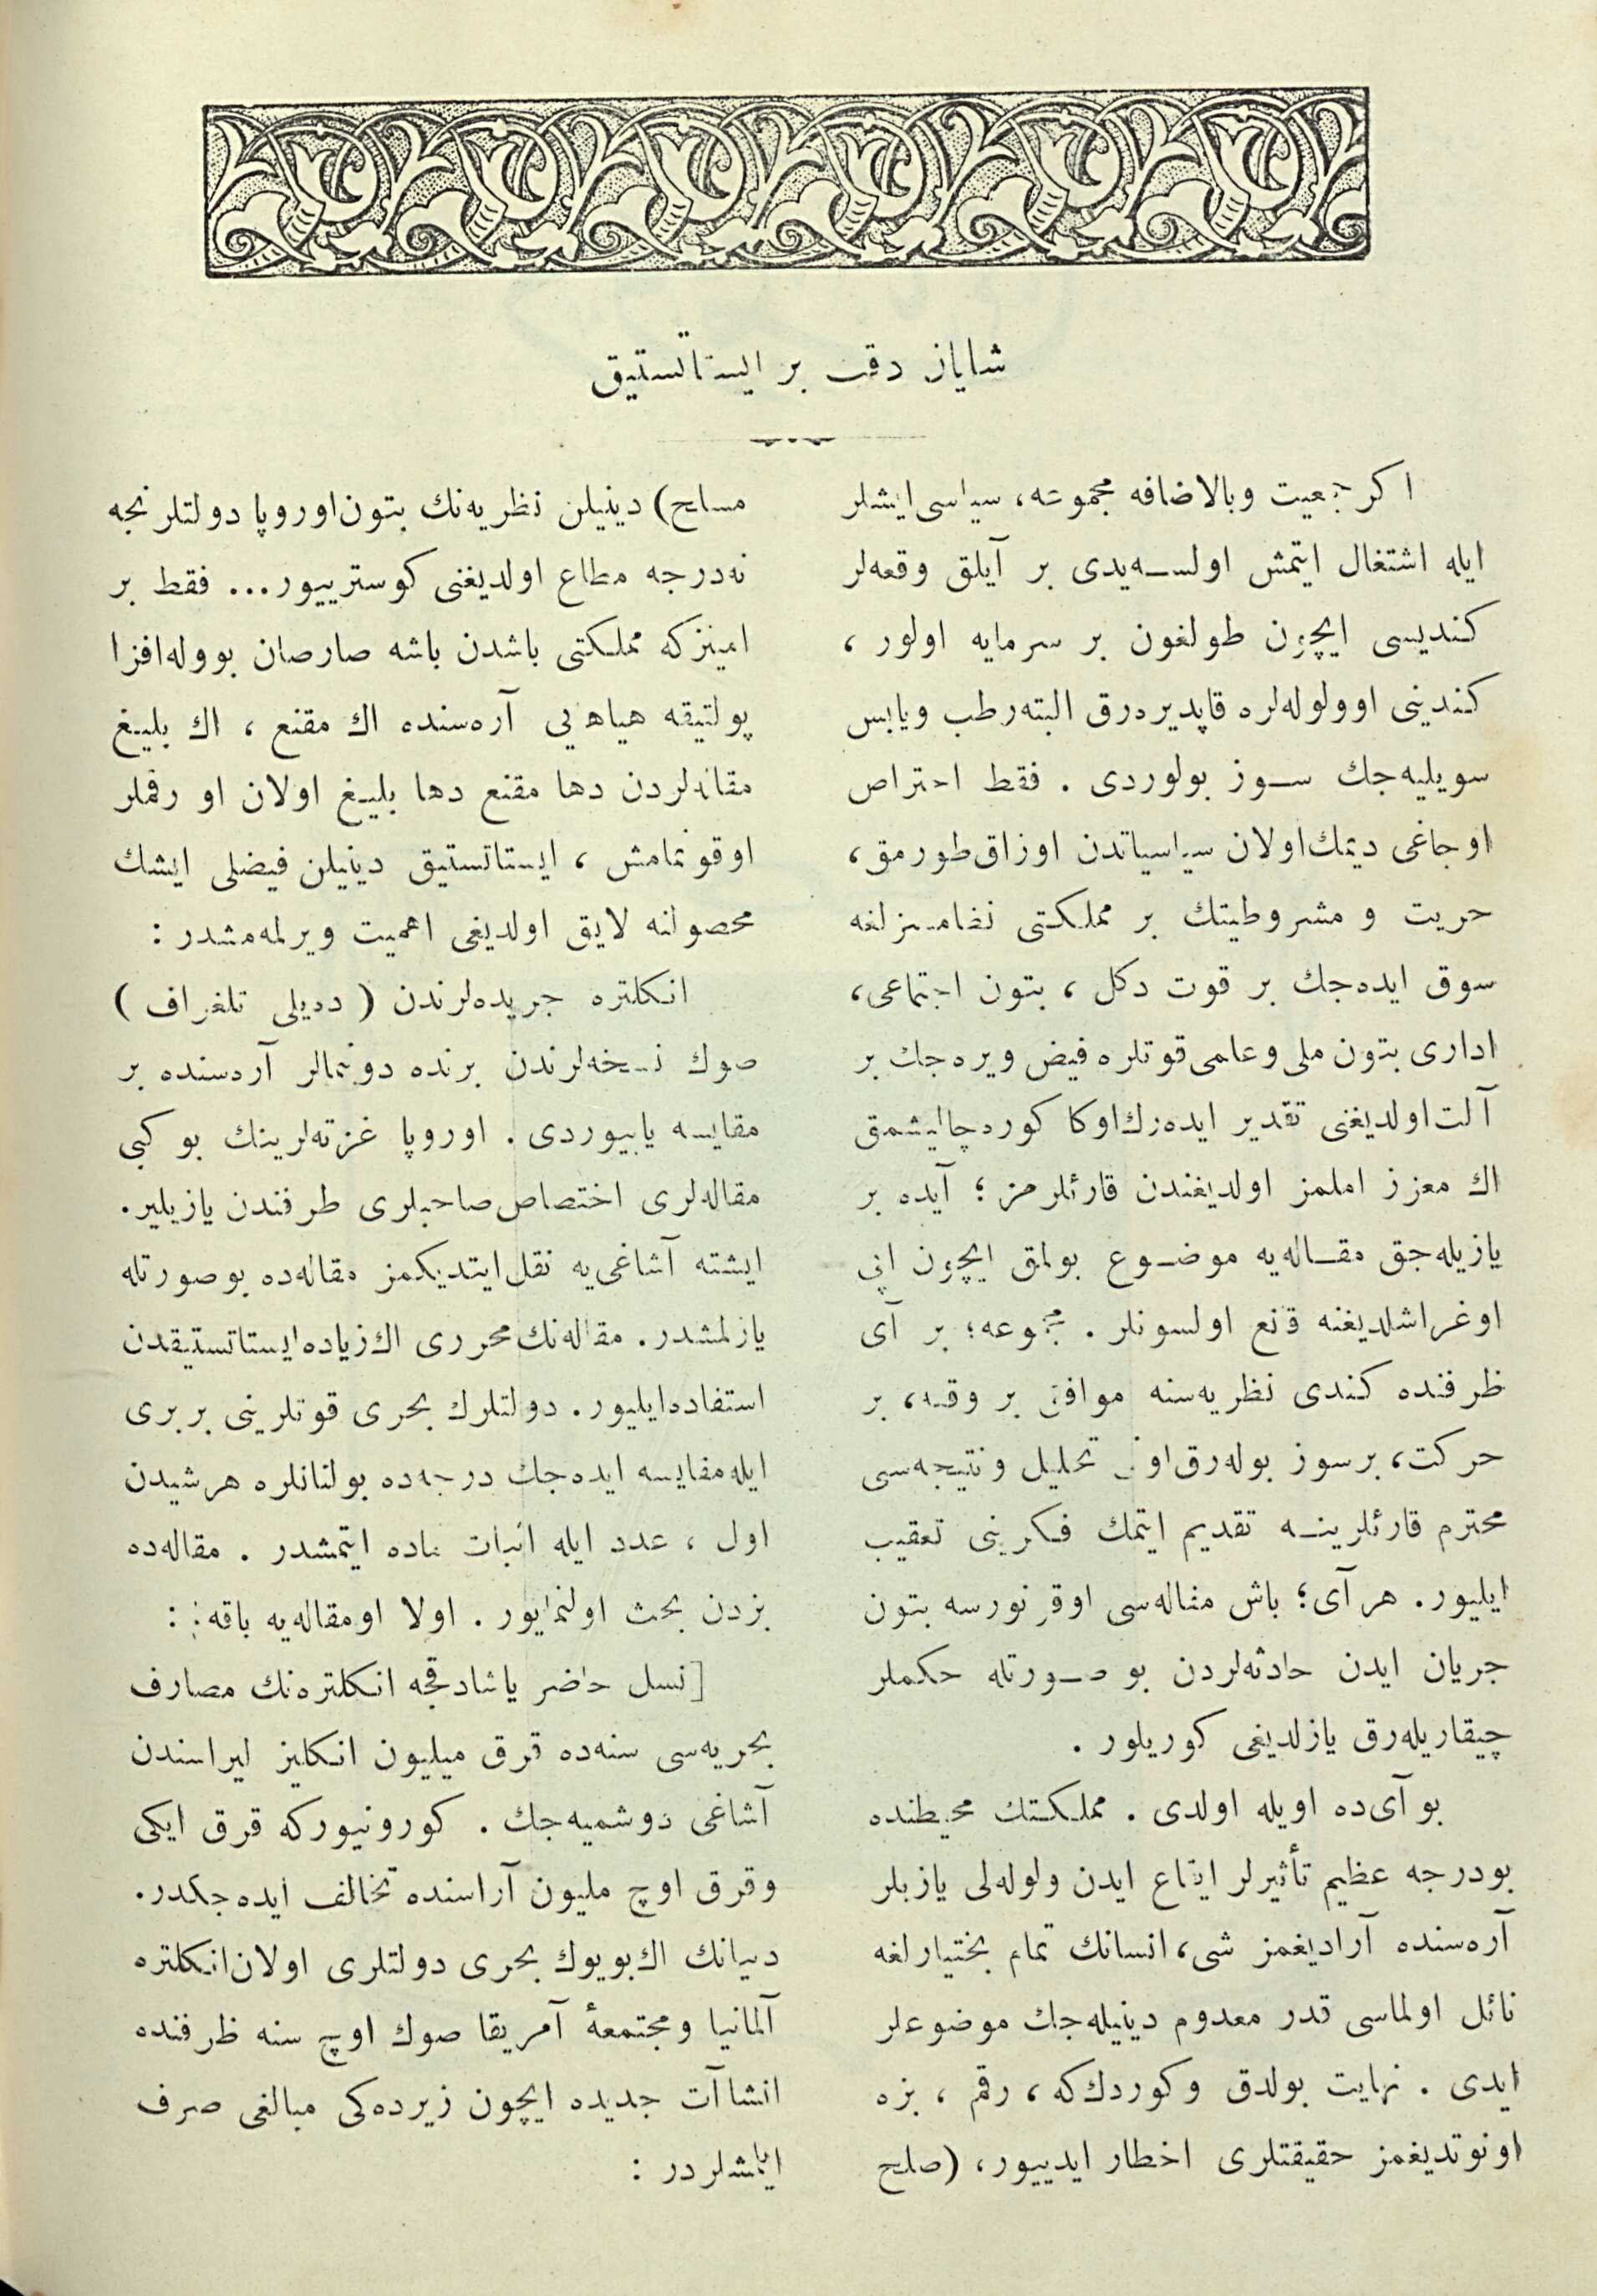 شایان دقت بر ایستاتستیق
اكر جمعیت وبالاضافه مجموعه، سیاسی ایشلر
ایله اشتغال ایتمش اولسه‌یدی بر آیلق وقعه‌لر
كندیسی ایچون طولغون بر سرمایه اولور ،
كندینی اوولوله‌لره قاپدیره‌رق البته رطب ویابس
سویلیه‌جك سوز بولوردی . فقط احتراص
اوجاغی دیمك اولان سیاسیاتدن اوزاق طورمق،
حریت و مشروطیتك بر مملكتی نظامسزلغه
سوق ایده‌جك بر قوت دكل ، بتون اجتماعی،
اداری بتون ملی وعلمی قوتلره فیض ویره‌جك بر
آلت اولدیغنی تقدیر ایده‌رك اوكا كوره چالیشمق
اك معزز املمز اولدیغندن قارئلرمز ؛ آیده بر
یازیله‌جق مقاله‌یه موضوع بولمق ایچون اپی
اوغراشلدیغنه قانع اولسونلر . مجموعه؛ بر آی
ظرفنده كندی نظریه‌سنه موافق بر وقعه، بر
حركت، برسوز بوله‌رق اونی تحلیل ونتیجه‌سی
محترم قارئلرینه تقدیم ایتمك فكرینی تعقیب
ایلیور. هر آی؛ باش مقاله‌سی اوقونورسه بتون
جریان ایدن حادثه‌لردن بو صورتله حكملر
چیقاریله‌رق یازلدیغی كوریلور .
بو آی‌ده اویله اولدی . مملكتك محیطنده
بودرجه عظیم تأثیرلر ایقاع ایدن ولوله‌لی یازیلر
آره‌سنده آرادیغمز شی، انسانك تمام بختیارلغه
نائل اولماسی قدر معدوم دینیله‌جك موضوعلر
ایدی . نهایت بولدق وكوردك‌كه ، رقم ، بزه
اونوتدیغمز حقیقتلری اخطار ایدییور، (صلح
مسلح) دینیلن نظریه‌نك بتون اوروپا دولتلرنجه
نه‌درجه مطاع اولدیغنی كوستریيور... فقط بز
امینزكه مملكتی باشدن باشه صارصان بووله‌افزا
پولتیقه هیاهویی آره‌سنده اك مقنع ، اك بلیغ
مقاله‌لردن دها مقنع دها بلیغ اولان او رقملر
اوقونمامش ، ایستاتستیق دینیلن فیضلی ایشك
محصولنه لایق اولدیغی اهمیت ویرلمه‌مشدر :
انكلتره جریده‌لرندن ( ده‌یلی تلغراف )
صوك نسخه‌لرندن برنده دونمالر آره‌سنده بر
مقایسه یاپیوردی . اوروپا غزته‌لرینك بو كبی
مقاله‌لری اختصاص صاحبلری طرفندن یازیلیر.
ایشته آشاغی‌یه نقل ایتدیكمز مقاله‌ده بوصورتله
یازلمشدر. مقاله‌نك محرری اك زیاده ایستاتستیقدن
استفاده ایلیور. دولتلرك بحری قوتلرینی بربری
ایله مقایسه ایده‌جك درجه‌ده بولنانلره هر شیدن
اول ، عدد ایله اثبات ماده ایتمشدر . مقاله‌ده
بزدن بحث اولنمایور . اولا اومقاله‌یه باقه‌لم :
[نسل حاضر یاشادقجه انكلتره‌نك مصارف
بحریه‌سی سنه‌ده قرق میلیون انكلیز لیراسندن
آشاغی دوشمیه‌جك . كورونیوركه قرق ایكی
وقرق اوچ ملیون آراسنده تخالف ایده‌جكدر.
دنیانك اك بویوك بحری دولتلری اولان انكلتره
آلمانیا ومجتمعهٔ آمریقا صوك اوچ سنه ظرفنده
انشاآت جدیده ایچون زیرده‌كی مبالغی صرف
ایتمشلردر :